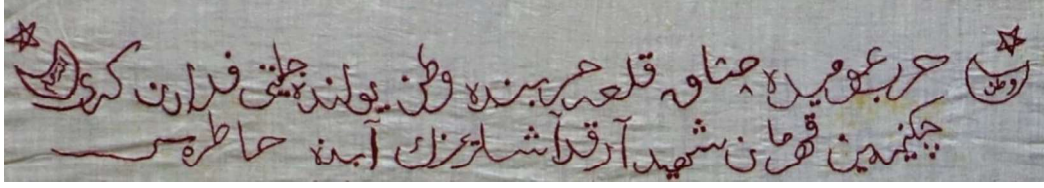 وطن حرب عموميده چناق قلعه حربنده وطن يولنده جاننى فدادن كرى
چكنمه‌ين قهرمان شهيد آرقداشلريمزك آبدۀ خاطره سى